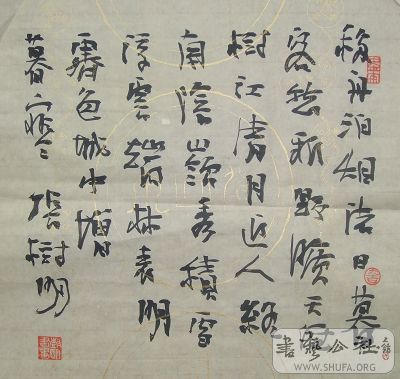 移舟泊烟渚日暮
客愁新野曠天低
樹江清月近人終
南陰嶺秀積雪
浮雲端林表明
霽色城中增
暮寒 張樹明
書藝公社
WWW.SHUFA.ORG